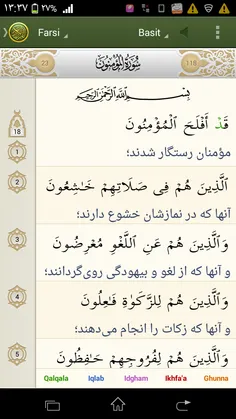 ۱۳:۳۷ ۲۷%
Farsi Basit
23 سورة المؤمنون 118
بِسْمِ اللَّهِ الرَّحْمَٰنِ الرَّحِيمِ
18
قَدْ أَفْلَحَ الْمُؤْمِنُونَ
1
مؤمنان رستگار شدند؛
الَّذِينَ هُمْ فِي صَلَاتِهِمْ خَاشِعُونَ
2
آنها که در نمازشان خشوع دارند؛
وَالَّذِينَ هُمْ عَنِ اللَّغْوِ مُعْرِضُونَ
3
و آنها که از لغو و بیهودگی روی‌گردانند؛
وَالَّذِينَ هُمْ لِلزَّكَوٰةِ فَاعِلُونَ
4
و آنها که زکات را انجام می‌دهند؛
وَالَّذِينَ هُمْ لِفُرُوجِهِمْ حَافِظُونَ
5
Qalqala Iqlab Idgham Ikhfa'a Ghunna